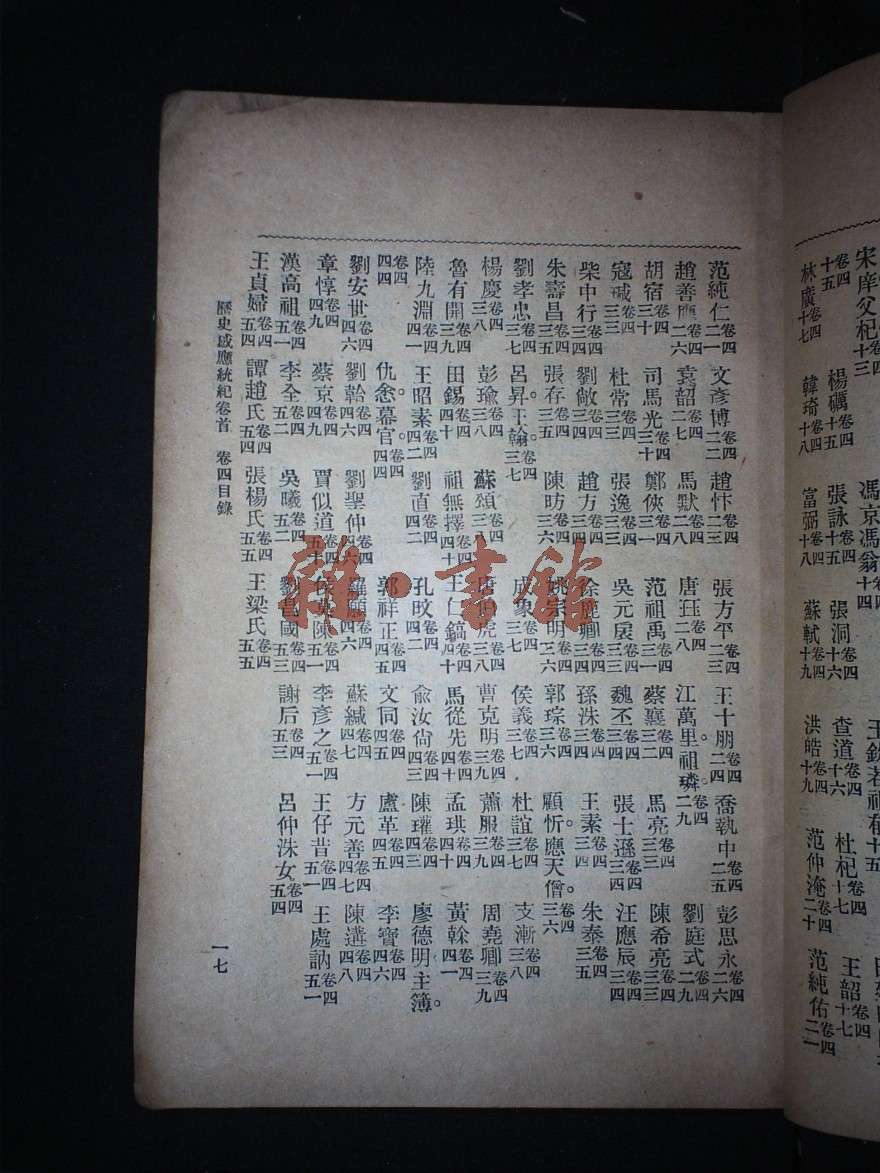 宋庠父杞卷四十三 馮京馮翁十四 王欽若祖郁十五
卷四十五 楊礪卷四十五 張詠卷四十五 張洞卷四十六 查道卷四十六 杜杞卷四十七 王韶卷四十七
林廣卷四十七 韓琦卷四十八 富弼卷四十八 蘇軾卷四十九 洪皓卷四十九 范仲淹卷四二十 范純佑卷四二一
范純仁卷四二一 文彥博卷四二二 趙忭卷四二三 張方平卷四二三 王十朋卷四二四 喬執中卷四二五 彭思永卷四二六
趙善應卷四二六 袁韶卷四二七 馬默卷四二八 唐玨卷四二八 江萬里祖璘。卷四二九 劉庭式卷四二九
胡宿卷四三十 司馬光卷四三十 鄭俠卷四三一 范祖禹卷四三一 蔡襄卷四三二 馬亮卷四三三 陳希亮卷四三三
寇瑊卷四三三 杜常卷四三三 張逸卷四三三 吳元扆卷四三三 魏丕卷四三四 張士遜卷四三四 汪應辰卷四三四
柴中行卷四三四 劉敞卷四三四 趙方卷四三四 徐鹿卿卷四三四 孫洙卷四三四 王素卷四三四 朱泰卷四三五
朱壽昌卷四三五 張存卷四三五 陳昉卷四三六 姚宗明卷四三六 郭琮卷四三六 顧忻。應天僧。卷四三六
劉孝忠卷四三七 呂昇。王翰。卷四三七 成象卷四三七 侯義卷四三七 杜誼卷四三七 支漸卷四三八
楊慶卷四三八 彭瑜卷四三八 蘇頌卷四三八 唐伯虎卷四三八 曹克明卷四三九 蕭服卷四三九 周堯卿卷四三九
魯有開卷四三九 田錫卷四四十 祖無擇卷四四十 王仁鎬卷四四十 馬從先卷四四十 孟珙卷四四十 黃榦卷四四一
陸九淵卷四四一 王昭素卷四四二 劉直卷四四二 孔旼卷四四二 俞汝尙卷四四三 陳瓘卷四四三 廖德明主簿。
卷四四四 仇悆幕官。卷四四四 郭祥正卷四四五 文同卷四四五 盧革卷四四五 李寶卷四四六
劉安世卷四四六 劉韐卷四四六 劉聖仲卷四四六 羅願卷四四六 蘇緘卷四四七 方元善卷四四七 陳遘卷四四八
章惇卷四四九 蔡京卷四四九 賈似道卷四五十 侯莫陳卷四五一 李彥之卷四五一 王仔昔卷四五一 王處訥卷四五一
漢高祖卷四五一 李全卷四五二 吳曦卷四五二 劉昌國卷四五三 謝后卷四五三 呂仲洙女卷四五四
王貞婦卷四五四 譚趙氏卷四五四 張楊氏卷四五五 王梁氏卷四五五
歷史感應統紀卷首 卷四目錄 一七
雜·書館